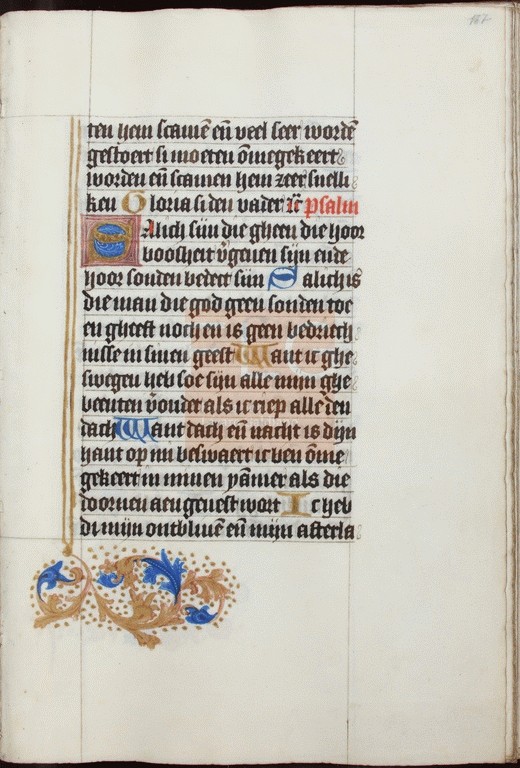 167
ten hem scamē eñ veel seer wordē
gestoert si moeten ōmegekeert
worden eñ scamen hem zeer snelli
ken Gloria si den vader ic psalm
Salich sijn die gheen die hoor
boosheit v̄geuen sijn ende
hoor sonden bedect sijn Salich is
die man die god geen sonden toe
en gheeft noch en is geen bedriech
nisse in sinen geest Want ic ghe
swegen heb soe sijn alle mijn ghe
beenten v̄onder als ic riep alle den
dach Want dach eñ nacht is dijn
hant op mi beswaert ic ben ōme
gekeert in minen yāmer als die
doornen aen geuest wort Ic heb
di mijn ontbliuē eñ mijn afterla